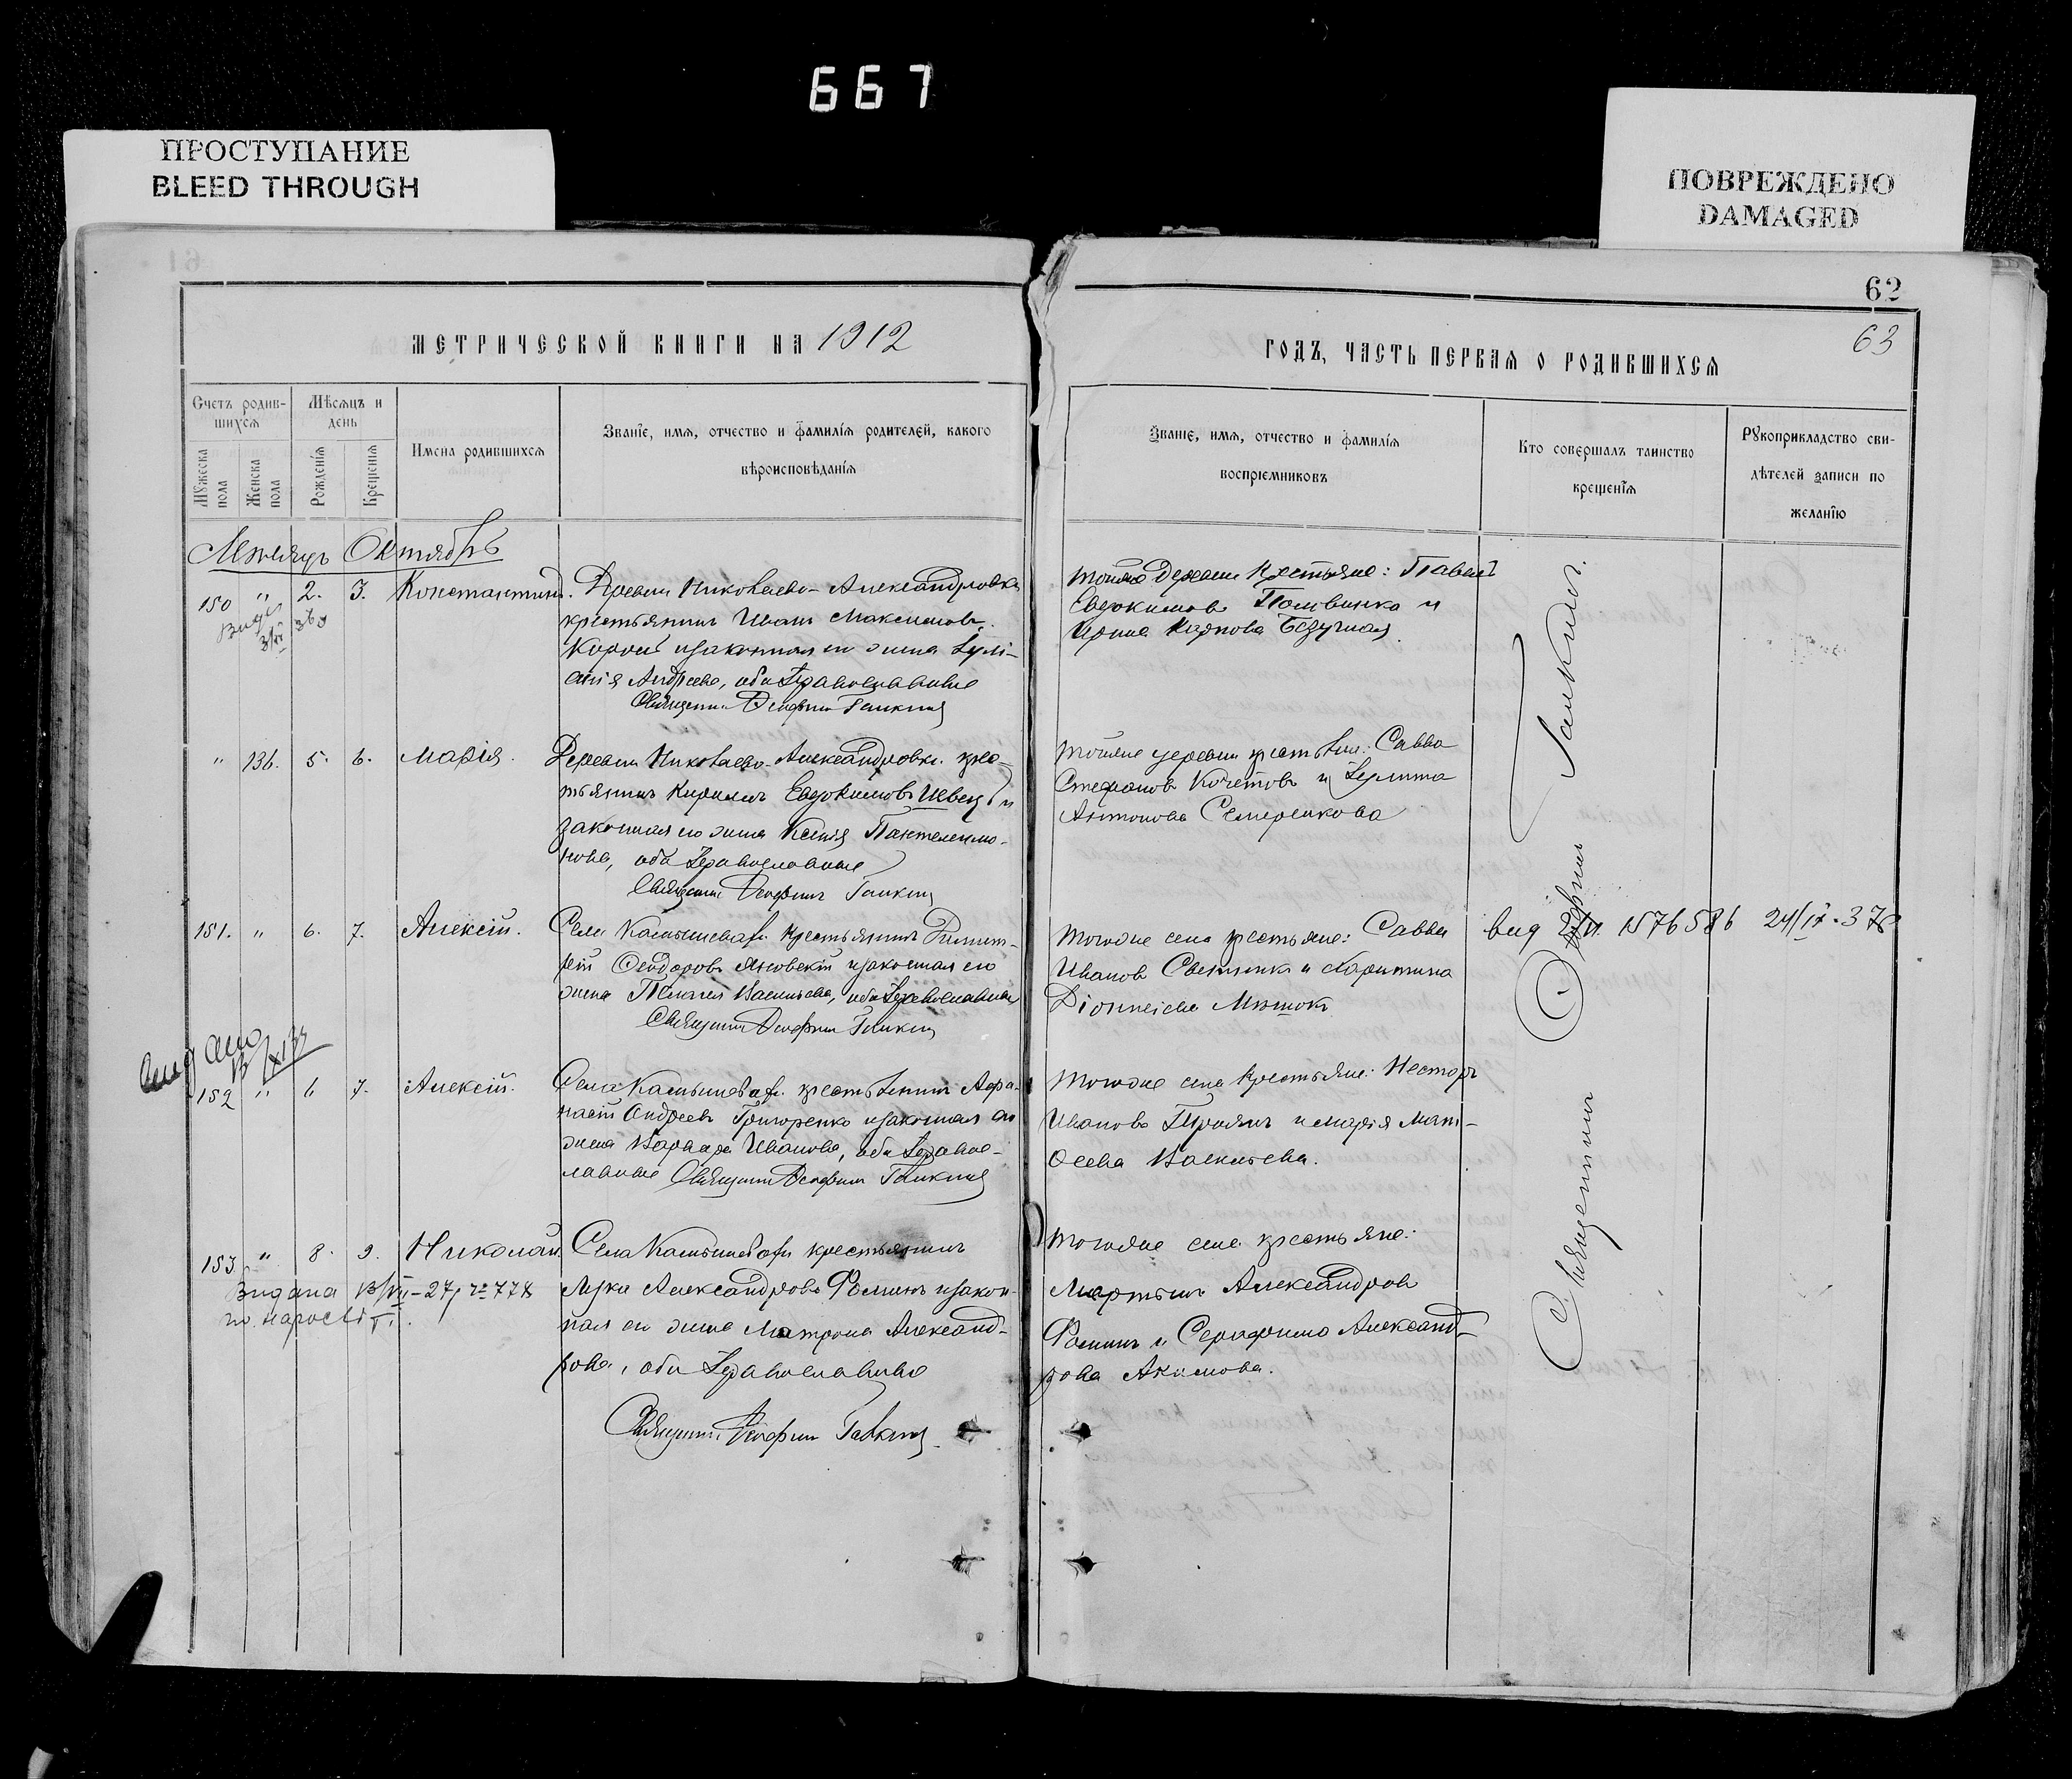 667
ПРОСТУПАНИЕ
BLEED THROUGH
ПОВРЕЖДЕНО
DAMAGED
62
63
МЕТРИЧЕСКОЙ КНИГИ НА 1912
ГОДЪ, ЧАСТЬ ПЕРВАЯ О РОДИВШИХСЯ
Счетъ родив-
шихся
Мѣсяцъ и
день
Мужеска пола
Женска пола
Рожденія
Крещенія
Имена родившихся
Званіе, имя, отчество и фамилія родителей, какого
вѣроисповѣданія
Званіе, имя, отчество и фамилія
воспріемниковъ
Кто совершалъ таинство
крещенія
Рукоприкладство сви-
дѣтелей записи по
желанію
Мѣсяцъ Октябрь
150 " 2. 3. Константинъ. Деревни Николаево-Александровки
крестьянинъ Иванъ Максимовъ
Король и законная его жена Іулі-
анія Андреева, оба Православные
Священникъ Галкинъ
Тойже деревни крестьяне: Павелъ
Евдокимовъ и
Карпова
" 136. 5. 6. Марія. Деревни Николаево-Александровки крес-
тьянинъ Кириллъ Евдокимовъ Швец и
законная его жена Ксенія Пантелеимо-
нова, оба Православные
Священникъ Галкинъ
Тойже деревни крестьяне: Савва
Стефановъ Кочетовъ и Іулитта
Антонова Семеренкова
151. " 6. 7. Алексій. Села крестьянинъ Димит-
рій Феодоровъ Яновскій и законная его
жена Пелагея Васильева, оба Православные
Священникъ Галкинъ
Тогоже села крестьяне: Савва
Ивановъ и Харитина
вид 1576586 24/IX-37
152 " 6 7. Алексій. Села крестьянинъ Афа-
насій Андреевъ Григоренко и законная его
жена Варвара Иванова, оба Правос-
лавные Священникъ Галкинъ
Тогоже села крестьяне: Несторъ
Ивановъ и Марія Мат-
Васильева.
153 " 8. 9. Николай. Села крестьянинъ
Лука Александровъ Фоминъ и закон-
ная его жена Матрона Александ-
рова, оба Православные
Священникъ Галкинъ
Видана
Тогоже села крестьяне:
Мартынъ Александровъ
Фоминъ и Серафима Александ-
рова Акимова.
Священникъ Галкинъ.